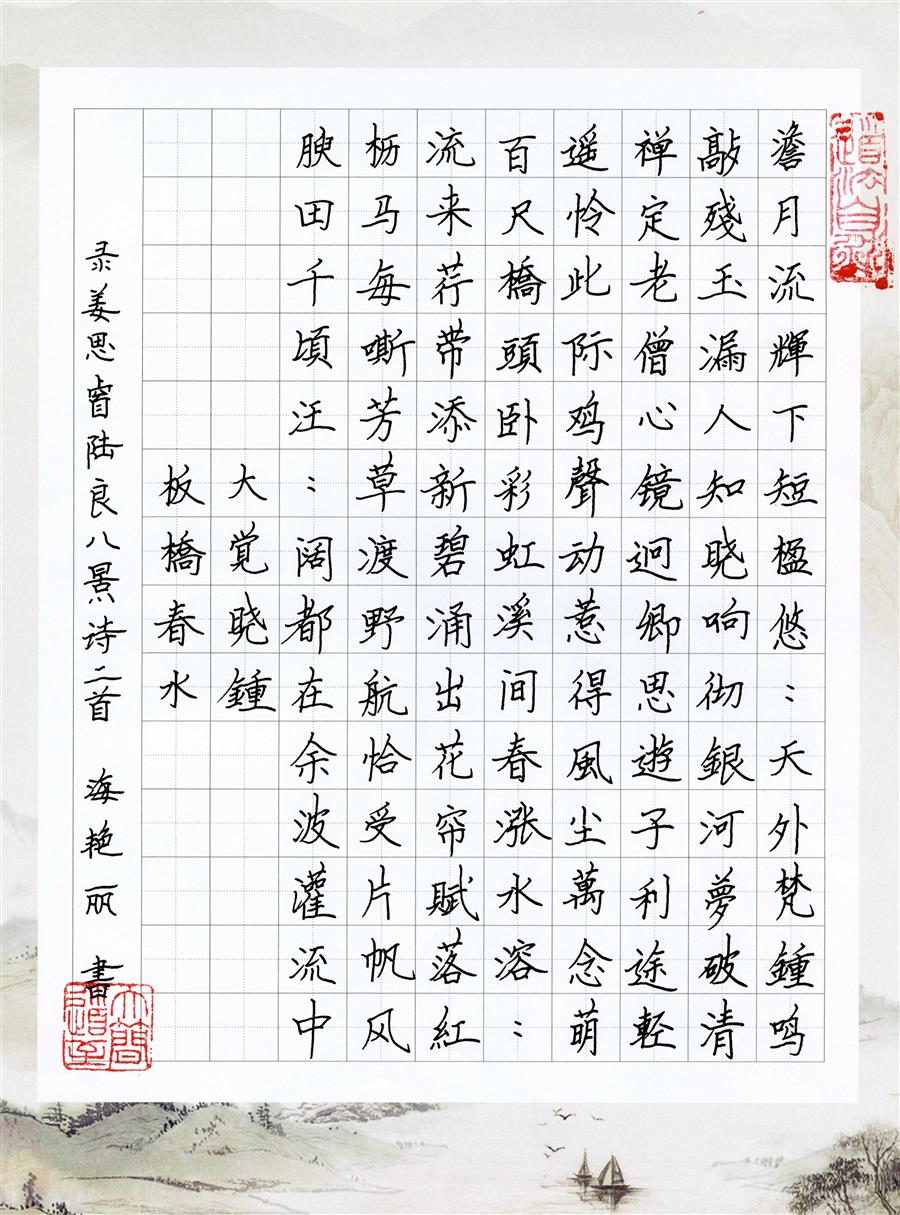 澹月流輝下短楹悠：天外梵鍾鸣
敲殘玉漏人知晓响彻銀河夢破清
禅定老僧心镜迥卿思遊子利途軽
遥怜此际鸡聲动惹得風尘萬念萌
百尺橋頭卧彩虹溪间春涨水溶：
流来荇带添新碧涌出花帘賦落紅
枥马每嘶芳草渡野航恰受片帆风
腴田千頃汪：阔都在余波灌流中
大覚晓鍾
板橋春水
录姜思睿陆良八景诗二首 海艳丽 書
道法自然
大道至简